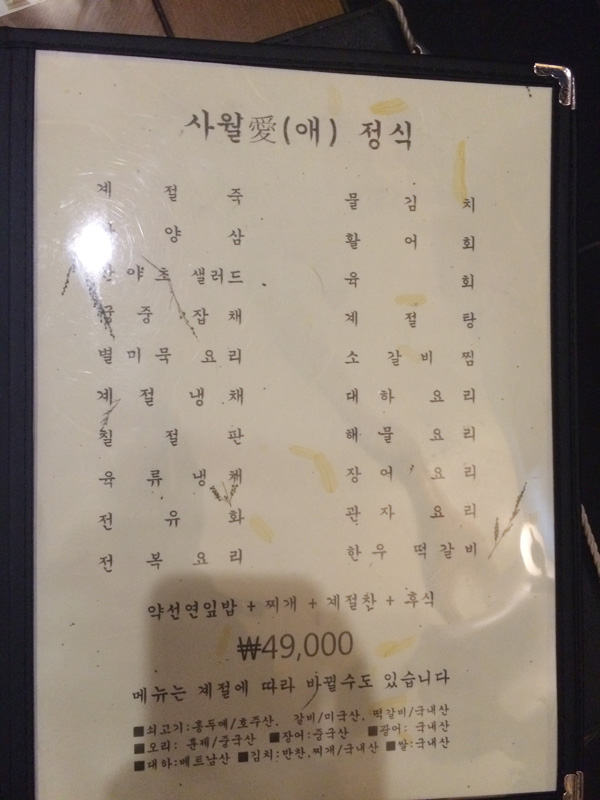 사월愛(애) 정식
계절죽
양삼
야초 샐러드
궁중 잡채
별미묵 요리
계절냉채
칠절판
육류냉채
전유화
전복요리
물김치
활어회
육회
계절탕
소갈비찜
대하 요리
해물 요리
장어 요리
관자 요리
한우 떡갈비
약선연잎밥 + 찌개 + 계절찬 + 후식
₩49,000
메뉴는 계절에 따라 바뀔수도 있습니다
■쇠고기:홍두깨/호주산, 갈비/미국산, 떡갈비/국내산
■오리: 훈제/중국산 ■장어:중국산 ■광어: 국내산
■대하:베트남산 ■김치:반찬,찌개/국내산 ■쌀:국내산